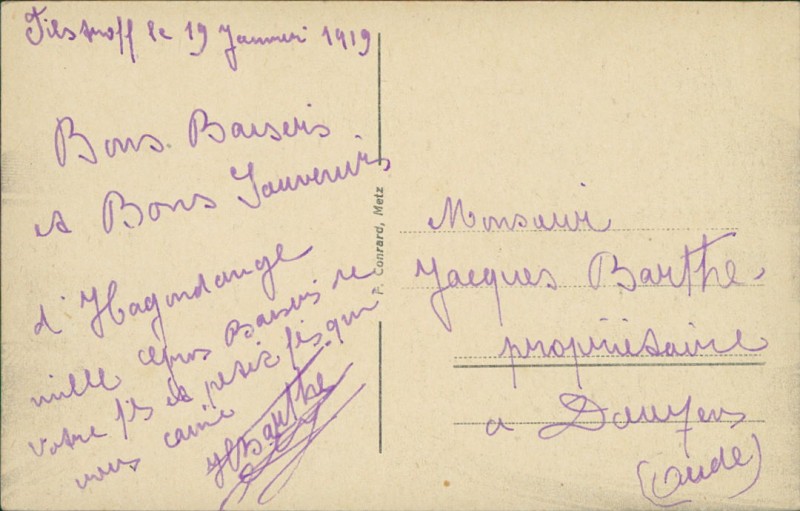 Filstroff le 19 Janvier 1919
Bons Baisers
et Bons Souvenirs
d'Hagondange
mille Baisers de
votre fils et petit fils qui
vous
HBarthe
P. Conrard, Metz
Monsieur
Jacques Barthe
propriétaire
a Douzens
(Aude)